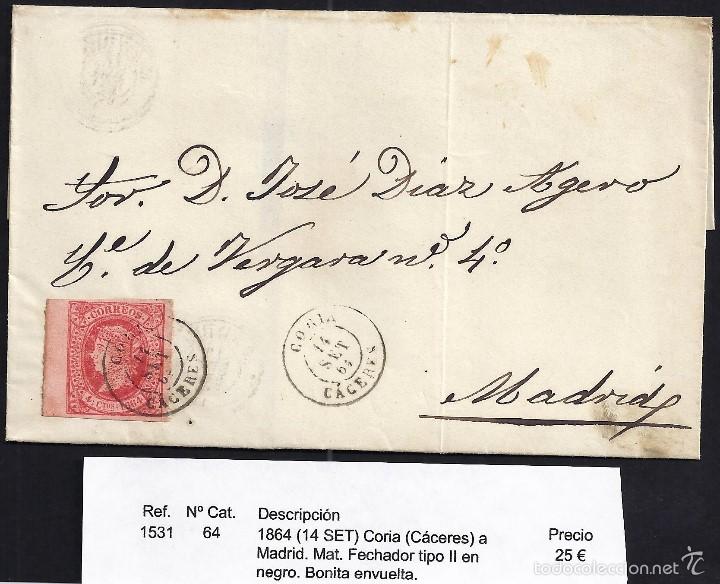 Sor. D. José Díaz Agero
Ce. de Vergara nº. 4º
CORREOS
CORIA
14
SET
CÁCERES
CORIA
14
SET
64
CÁCERES
Madrid
Ref. Nº Cat. Descripción
1531 64 1864 (14 SET) Coria (Cáceres) a Precio
Madrid. Mat. Fechador tipo II en 25 €
negro. Bonita envuelta.
todocoleccion.net